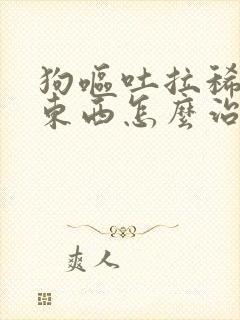 狗嘔吐拉稀
東西怎麼治
爽人